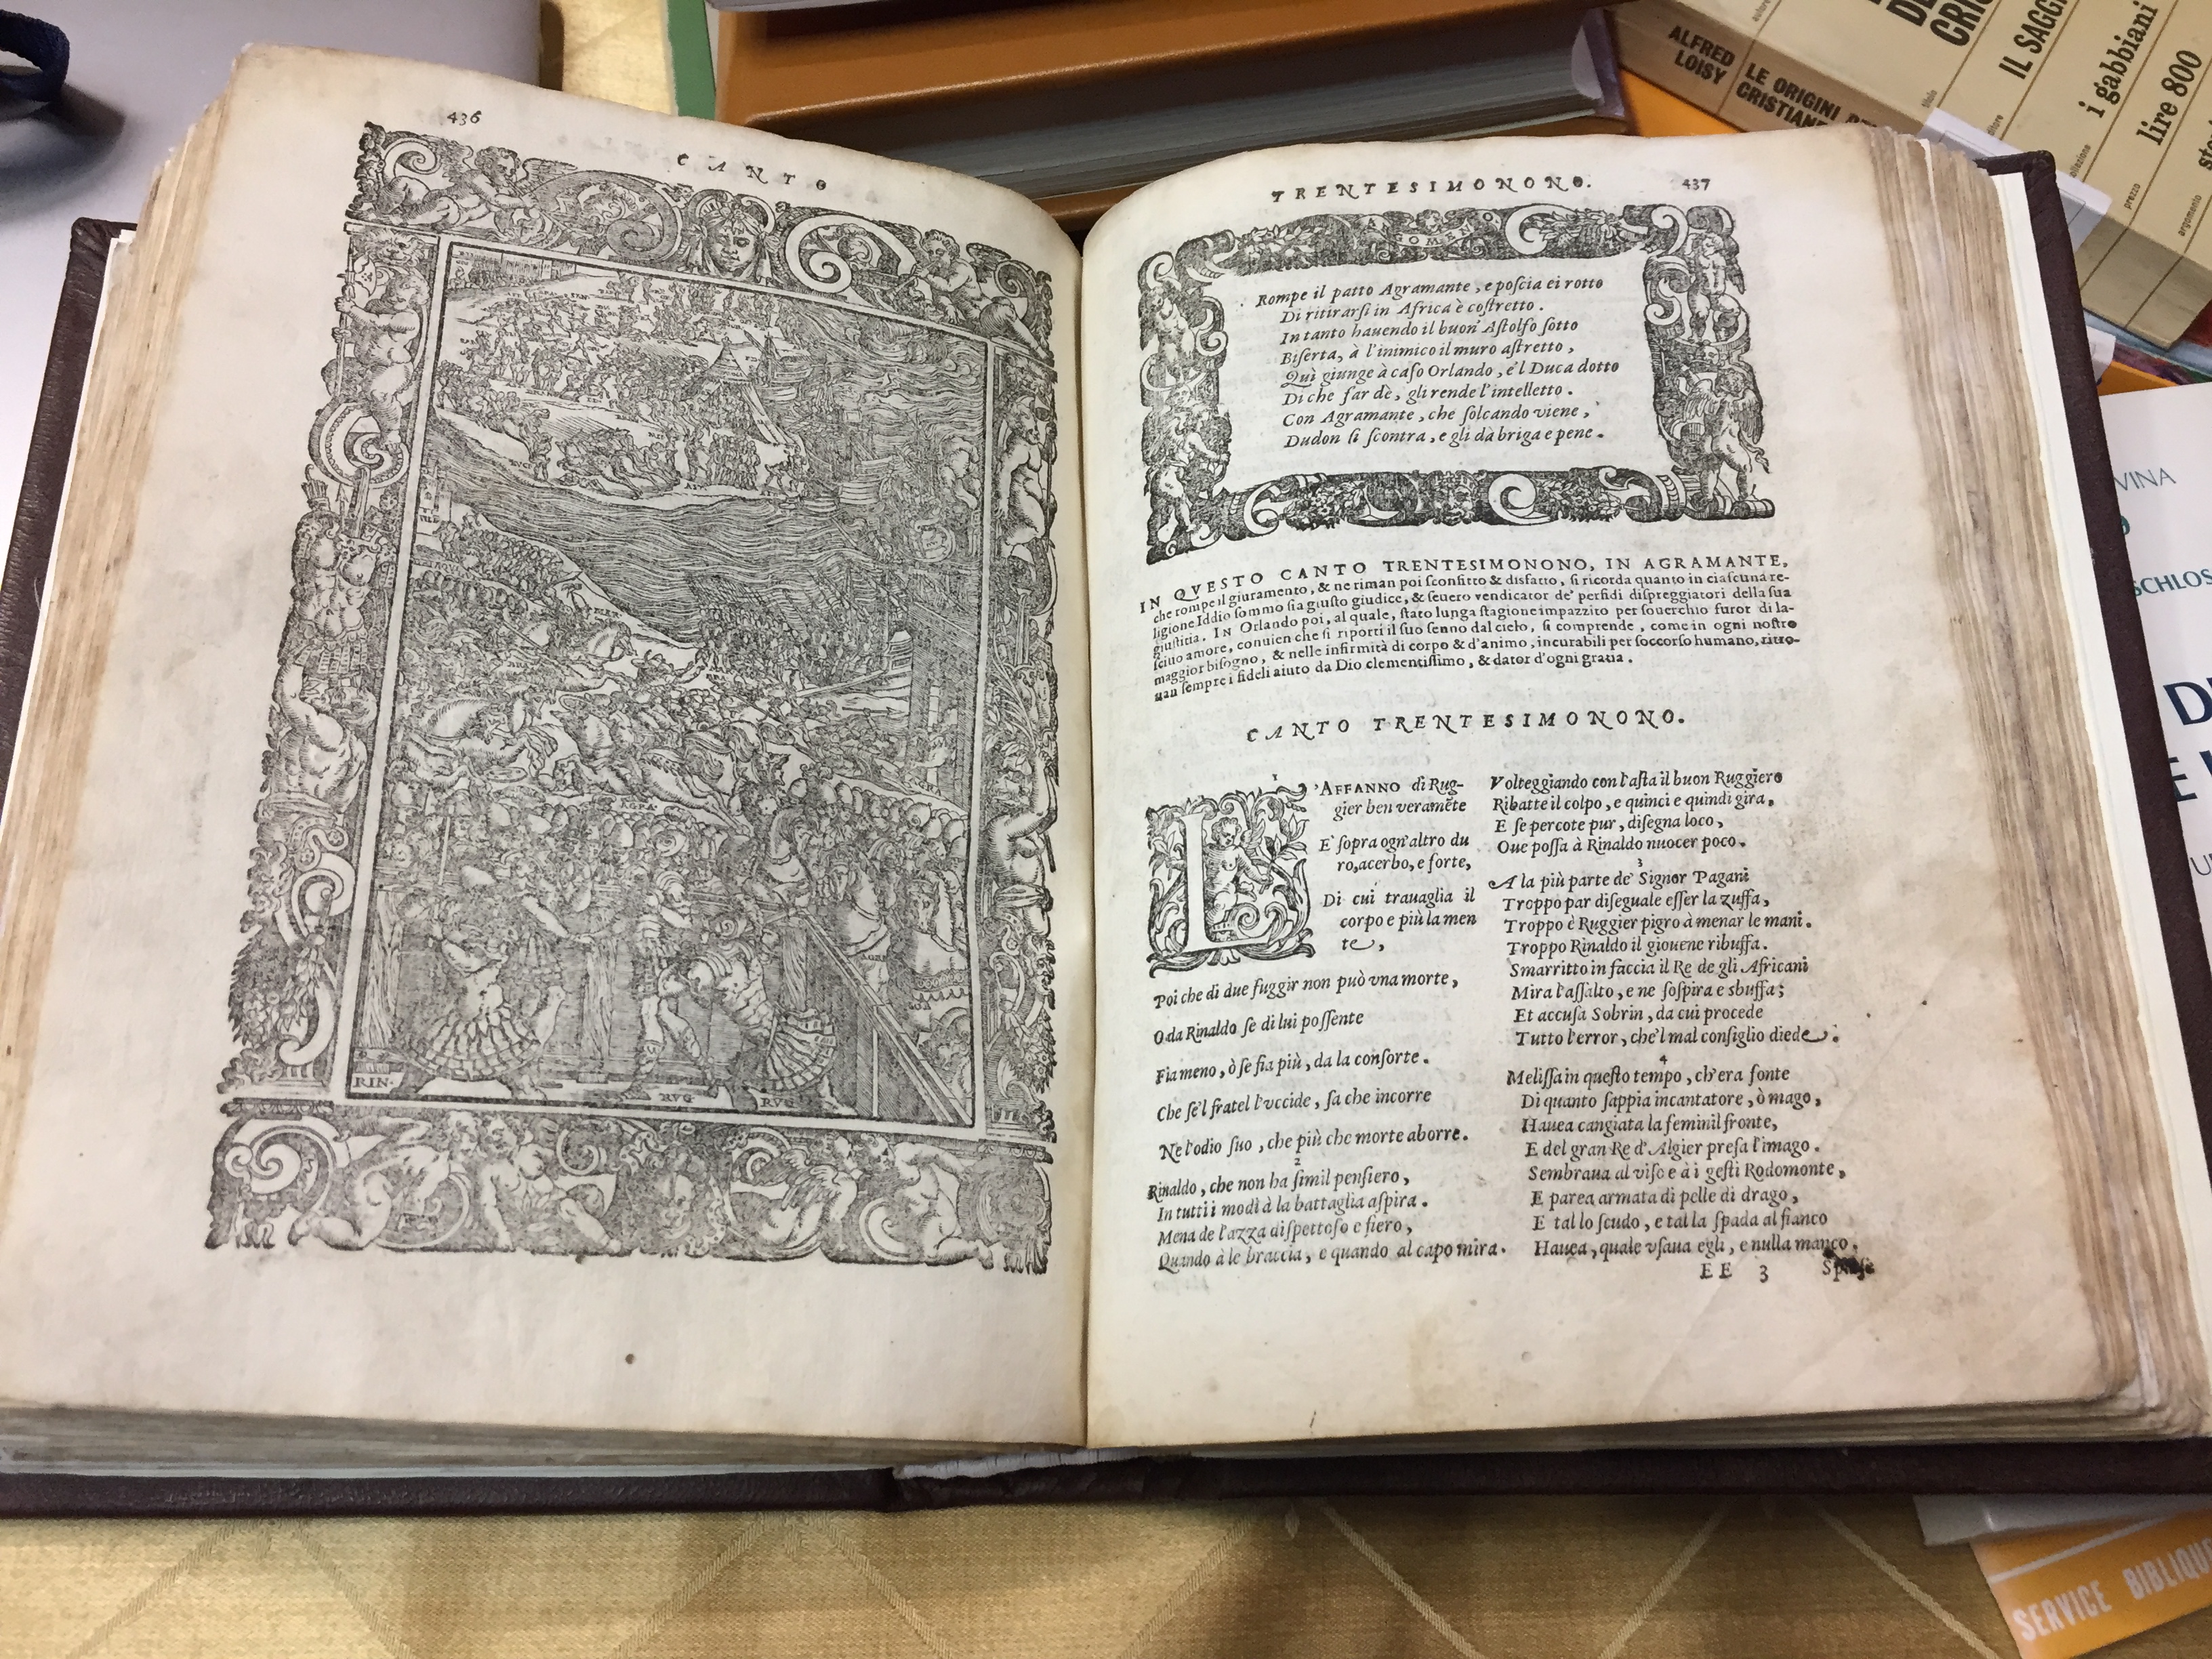 436
CANTO
RIN.
RVG
RVG
AGRA.
AGRA
TRENTESIMONONO.
437
Rompe il patto Agramante, e poſcia ei rotto
Di ritirarſi in Africa è coſtretto.
In tanto hauendo il buon' Aſtolfo ſotto
Biſerta, à l'inimico il muro aſtretto,
Quì giunge à caſo Orlando, e'l Duca dotto
Di che far dè, gli rende l'intelletto.
Con Agramante, che ſolcando viene,
Dudon ſi ſcontra, e gli dà briga e pene.
IN QVESTO CANTO TRENTESIMONONO, IN AGRAMANTE,
che rompe il giuramento, & ne riman poi ſconfitto & disfatto, ſi ricorda quanto in ciaſcuna re-
ligione Iddio ſommo ſia giuſto giudice, & ſeuero vendicator de' perfidi diſpreggiatori della ſua
giuſtitia. IN Orlando poi, al quale, ſtato lunga ſtagione impazzito per ſouerchio furor di la-
ſciuo amore, conuien che ſi riporti il ſuo ſenno dal cielo, ſi comprende, come in ogni noſtro
maggior biſogno, & nelle infirmità di corpo & d'animo, incurabili per ſoccorſo humano, ritro-
uan ſempre i fideli aiuto da Dio clementiſſimo, & dator d'ogni gratia.
CANTO TRENTESIMONONO.
1
L'AFFANNO di Rug-
gier ben veramẽte
E' ſopra ogn'altro du
ro, acerbo, e forte,
Di cui trauaglia il
corpo e più la men
te,
Poi che di due fuggir non può vna morte,
O da Rinaldo ſe di lui poſſente
Fia meno, ò ſe fia più, da la conſorte.
Che ſe'l fratel l'vccide, ſa che incorre
Ne l'odio ſuo, che più che morte aborre.
2
Rinaldo, che non ha ſimil penſiero,
In tutti i modi à la battaglia aſpira.
Mena de l'azza diſpettoſo e fiero,
Quando à le braccia, e quando al capo mira.
Volteggiando con l'aſta il buon Ruggiero
Ribatte il colpo, e quinci e quindi gira,
E ſe percote pur, diſegna loco,
Oue poſſa à Rinaldo nuocer poco.
3
A la più parte de' Signor Pagani
Troppo par diſeguale eſſer la zuffa,
Troppo è Ruggier pigro à menar le mani.
Troppo Rinaldo il giouene ribuffa.
Smarritto in faccia il Re de gli Africani
Mira l'aſſalto, e ne ſoſpira e sbuffa;
Et accuſa Sobrin, da cui procede
Tutto l'error, che'l mal conſiglio diede.
4
Meliſſa in queſto tempo, ch'era fonte
Di quanto ſappia incantatore, ò mago,
Hauea cangiata la feminil fronte,
E del gran Re d'Algier preſa l'imago.
Sembraua al viſo e à i geſti Rodomonte,
E parea armata di pelle di drago,
E tal lo ſcudo, e tal la ſpada al fianco
Hauea, quale vſaua egli, e nulla manco.
EE 3
ALFRED
LOISY
LE ORIGINI
CRISTIANE
IL SAGG
i gabbiani
lire 800
prezzo
argomento
VINA
SCHLOS
SERVICE BIBLIQU